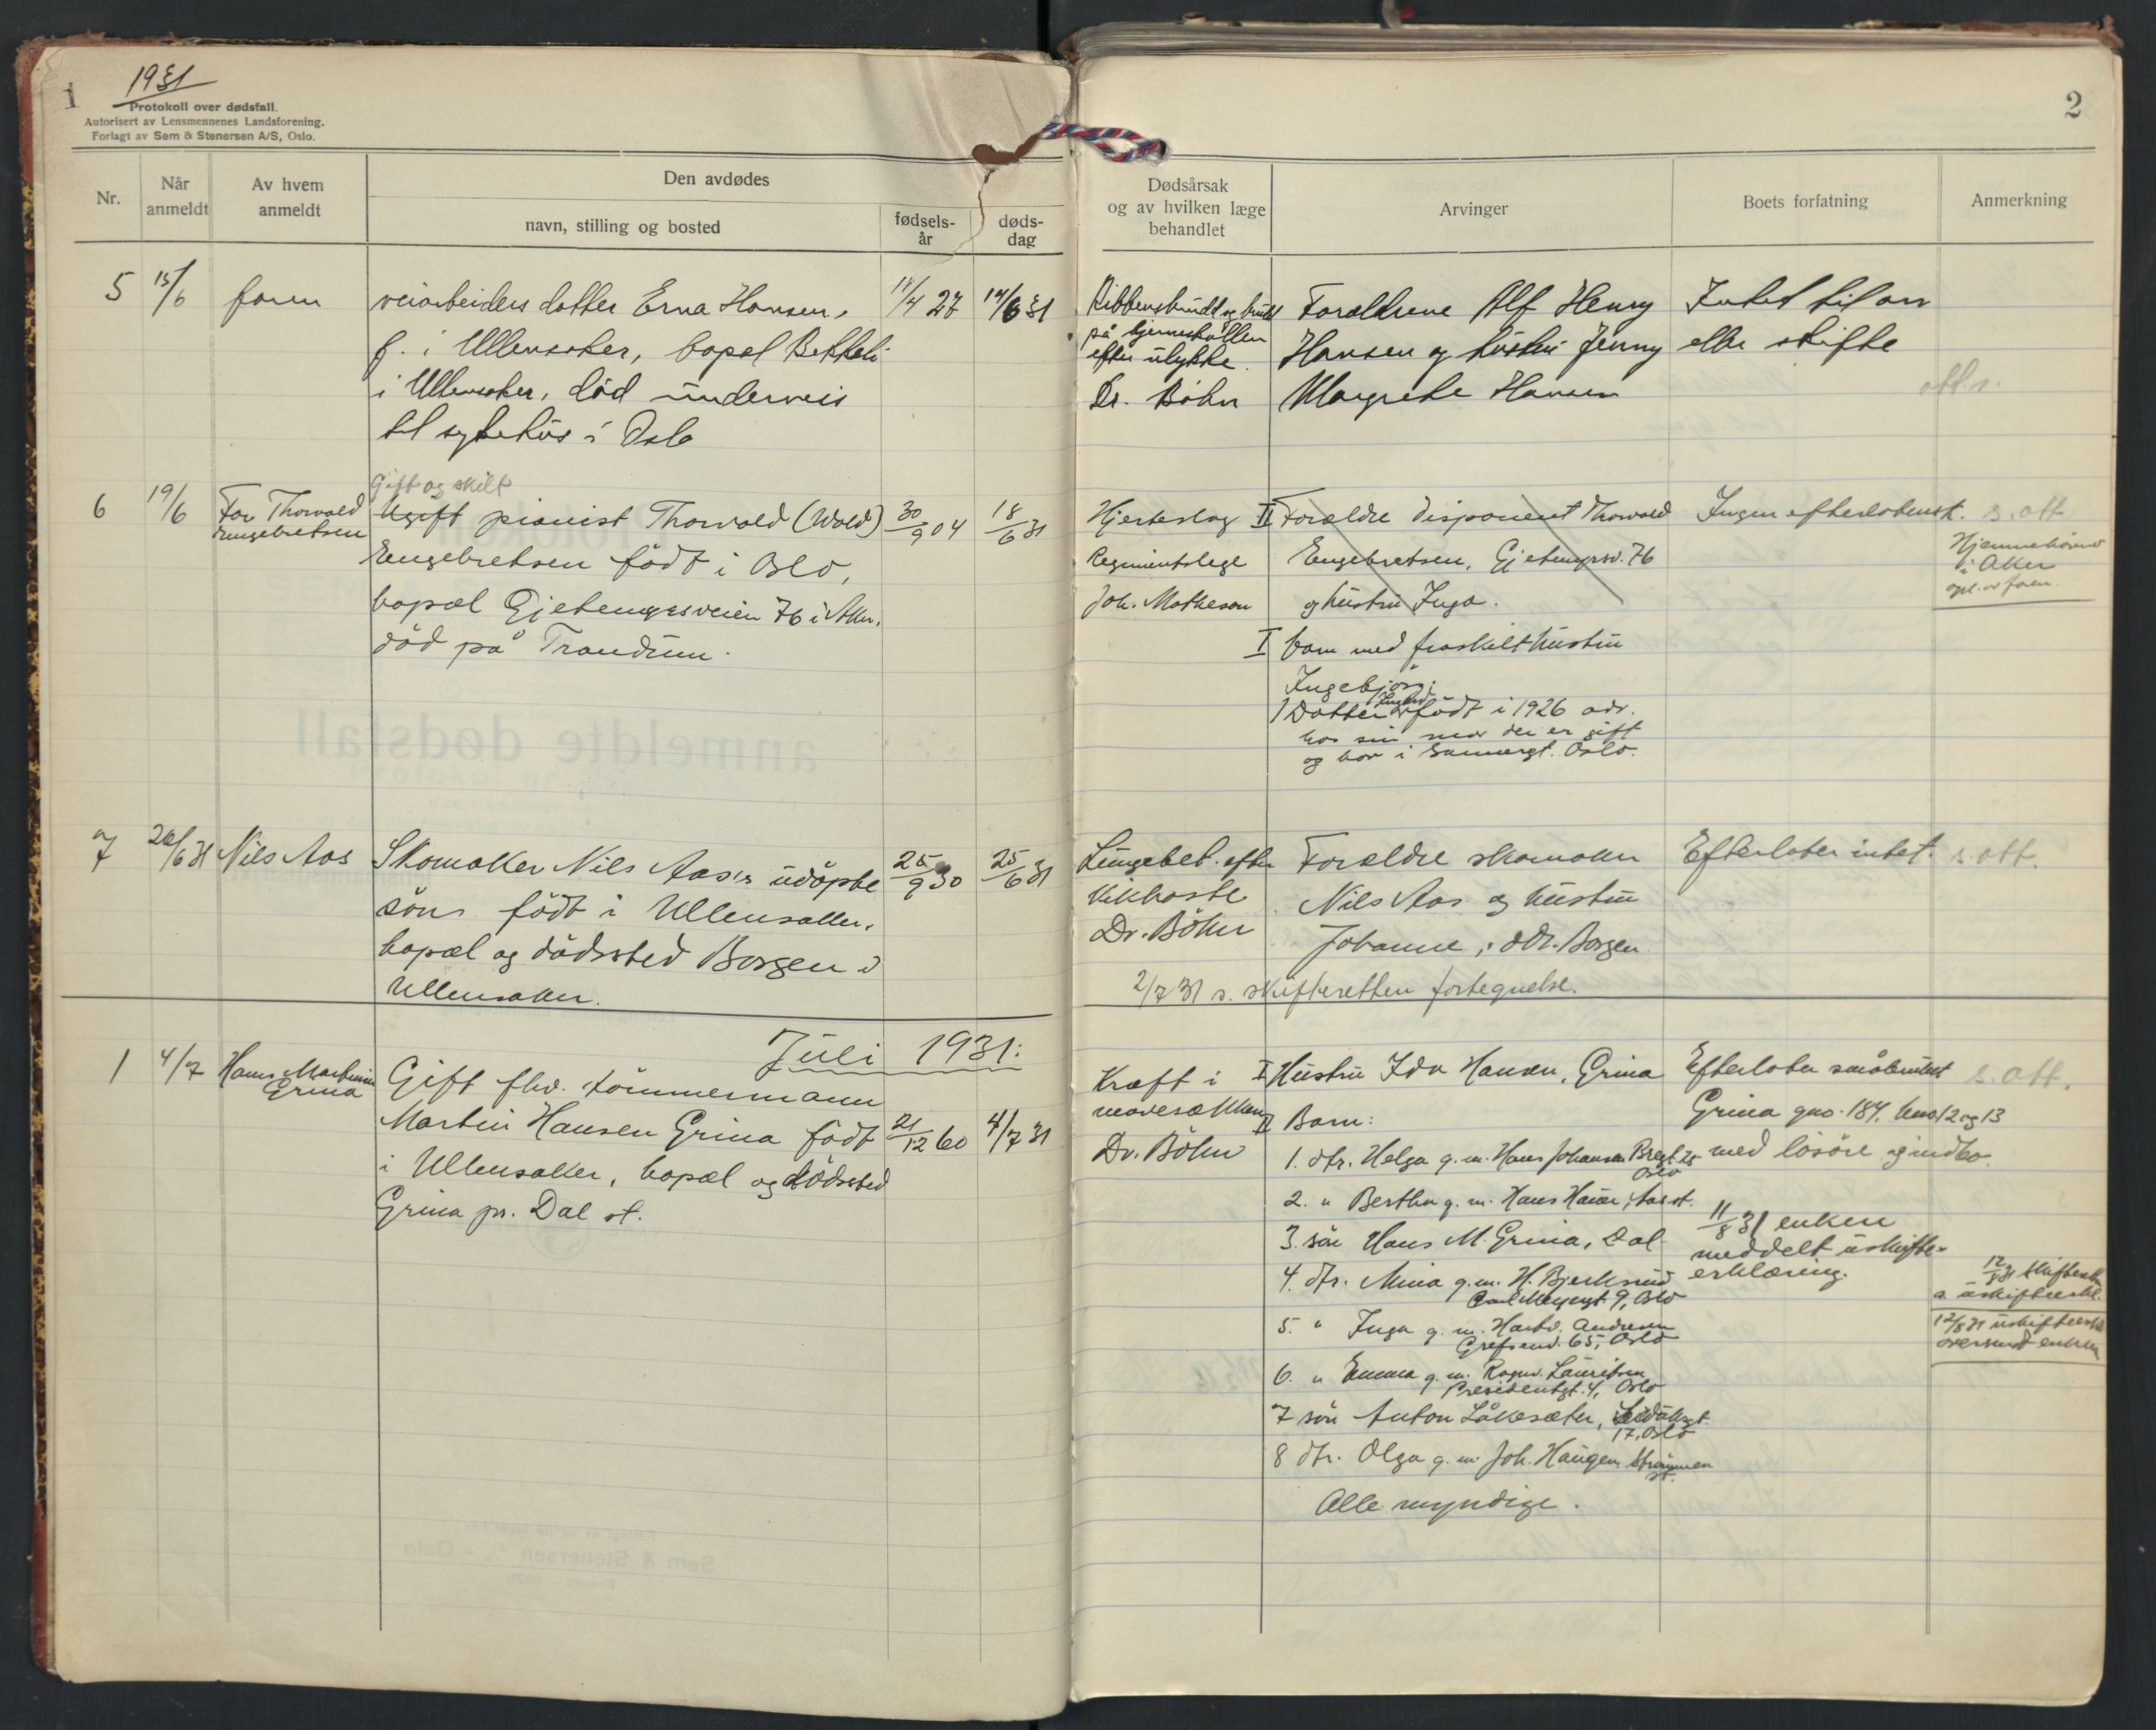 1
1931
Protokoll over dødsfall.
Autorisert av Lensmennenes Landsforening.
Forlagt av Sem & Stenersen A/S, Oslo.
Nr.
Når anmeldt
Av hvem anmeldt
Den avdødes
navn, stilling og bosted
fødsels-år
døds-dag
5 15/6 faren veiarbeiders datter Erna Hansen, 11/4 27 14/6 31
f. i Ullensaker, bopel Bekkeli
i Ullensaker, död underveis
til sykehus i Oslo
Gift og skilt
6 19/6 Far Thorvald Engebretsen Ugift pianist Thorvald (Wald) 30/9 04 18/6 31
Engebretsen födt i Oslo,
bopæl Gjetemyrsveien 76 i Aker,
död på Trandum.
7 26/6 31 Nils Aas Skomaker Nils Aas's udöpte 25/9 30 25/6 31
sön födt i Ullensaker,
bopæl og dödssted Borgen i
Ullensaker.
Juli 1931:
1 4/7 Hans Martinin Grina Gift fhv. tömmermann
Martin Hansen Grina födt 21/12 60 4/7 31
i Ullensaker, bopæl og dödssted
Grina pr. Dal st.
2
Dødsårsak
og av hvilken læge
behandlet
Arvinger
Boets forfatning
Anmerkning
Ribbensbrudd og brudd Foreldrene Alf Henry Intet til arv
på hjerneskallen
efter ulykke. Hansen og hustru Jenny eller skifte
Dr. Böhn Margrethe Hansen
att s.
Hjerteslag II Forældre disponent Thorvald Ingen efterladensk. s. att
Regimentslege Engebretsen, Gjetemyrsv. 76
Hjemmehörende
i Aker
opl. av faren.
Joh. Matheson og hustru Inga.
I barn med fraskilt hustru
Ingebjörg:
1 Datter födt i 1926 adr.
hos sin mor der er gift
og bor i Oslo.
Lungebet. efter Forældre skomaker Efterlater intet. s. att.
kikhoste Nils Aas og hustru
Dr. Böhn Johanne, adr. Borgen
2/7 31 s. skifteretten fortegnelse.
Kræft i I Hustru Ida Hansen, Grina Efterlater småbruket s. att.
mavesækken II Barn: Grina gno. 184, bno 12 og 13
Dr. Böhn 1. dtr. Helga g.m. Hans Johansen 25 med lösöre og indbo.
Oslo
2. " Bertha g.m. Hans Hauer, Aas st.
3. sön Hans M. Grina, Dal
11/8 31 enken
meddelt uskifte-
erklæring.
4. dtr. Mina g.m. H. Bjerksund
Carl Meyersgt. 9, Oslo
12/8 31 skifteretten
a. uskifteerkl.
12/8 31 uskifteerkl
oversendt enken
5. " Inga g.m. Hartv. Andresen
Grefsenv. 65, Oslo
6. " Emma g.m. Ragnv. Lauritsen
Presidentgt. 4, Oslo
7 sön Anton Låkesæter,
17, Oslo
8 dtr. Olga g.m. Joh. Haugen, Strömmen
st.
Alle myndige.